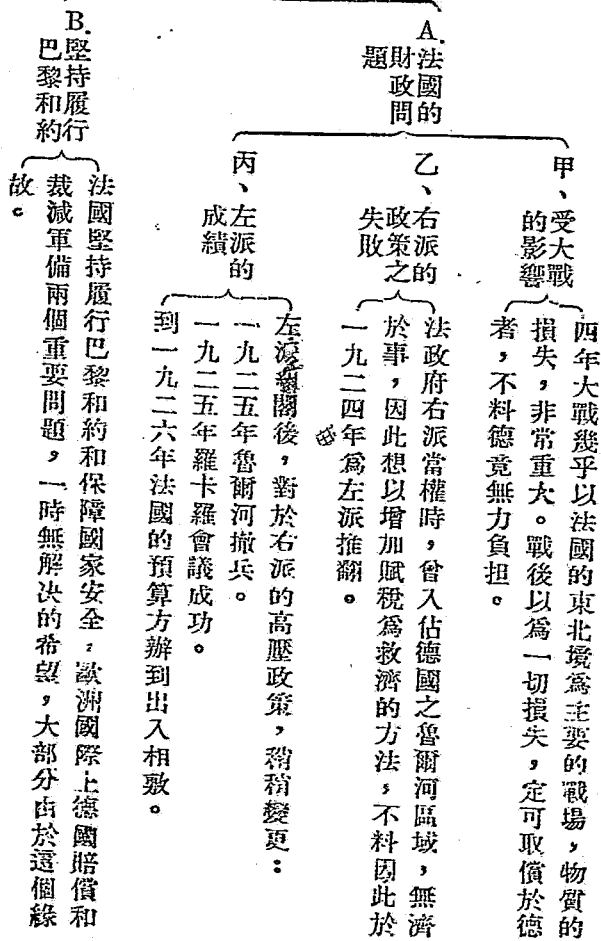 A.法國的
財政問
題
甲、受大戰
的影響
四年大戰幾乎以法國的東北境爲主要的戰場,物質的
損失,非常重大。戰後以爲一切損失,定可取償於德
者,不料德竟無力負担。
乙、右派的
政策之
失敗
法政府右派當權時,曾入佔德國之魯爾河區域,無濟
於事,因此想以增加賦稅爲救濟的方法,不料因此於
一九二四年爲左派推翻。
丙、左派的
成績
左派組閣後,對於右派的高壓政策,稍稍變更:
一九二五年魯爾河撤兵。
一九二五年羅卡羅會議成功。
到一九二六年法國的預算方辦到出入相敷。
B.堅持履行
巴黎和約
法國堅持履行巴黎和約和保障國家安全,歐洲國際上德國賠償和
裁減軍備兩個重要問題,一時無解決的希望,大部分由於這個緣
故。